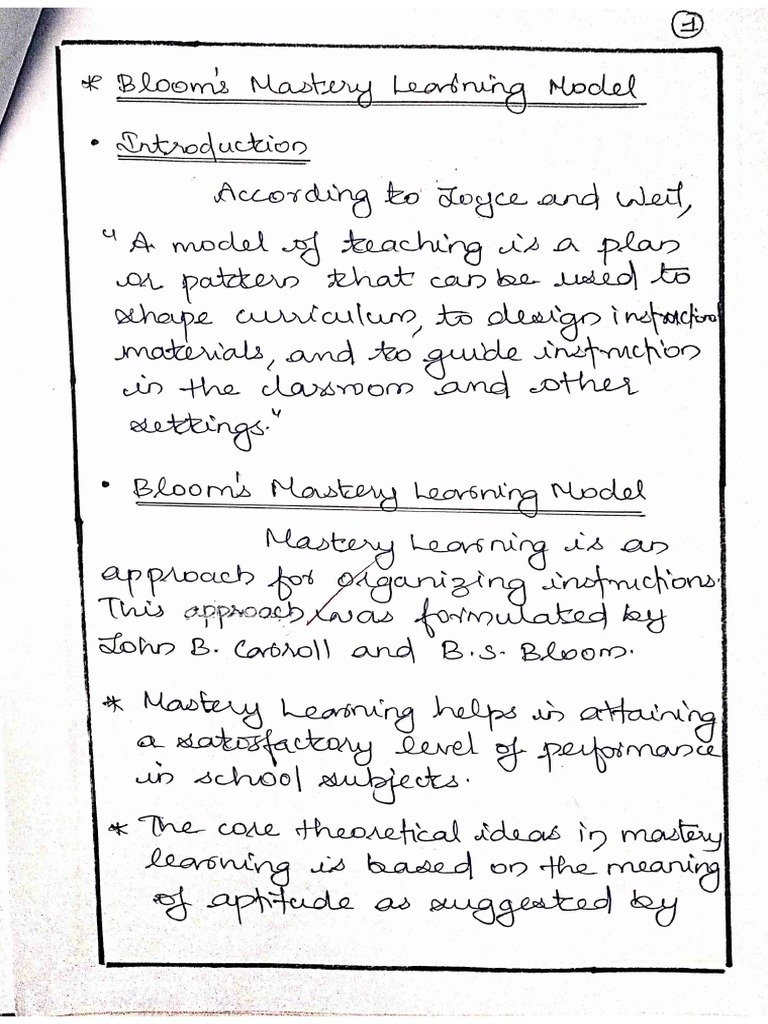 1
* Bloom's Mastery Learning Model
• Introduction
According to Joyce and Weil,
"A model of teaching is a plan
or pattern that can be used to
shape curriculum, to design instructional
materials, and to guide instruction
in the classroom and other
settings."
• Bloom's Mastery Learning Model
Mastery Learning is an
approach for organizing instructions.
This approach was formulated by
John B. Carroll and B.S. Bloom.
* Mastery Learning helps in attaining
a satisfactory level of performance
in school subjects.
* The core theoretical ideas in mastery
learning is based on the meaning
of aptitude as suggested by